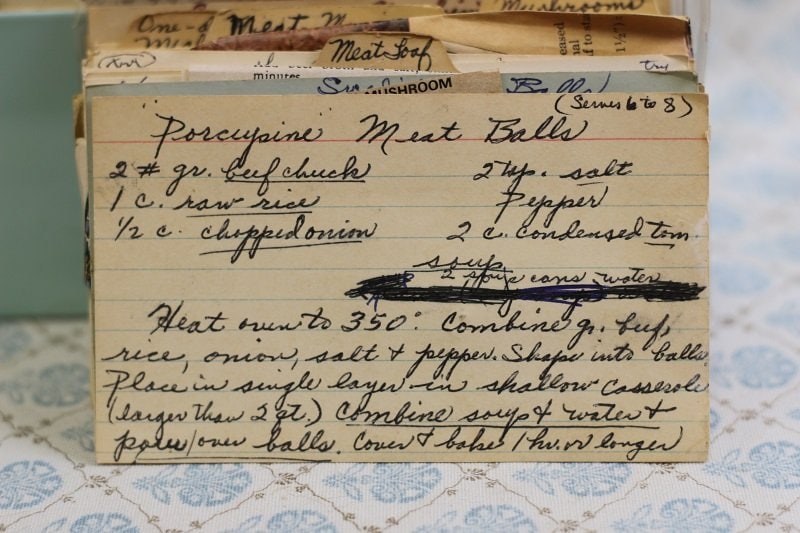 One-d Meat Mushrooms
Meat Loaf
minutes.
try
MUSHROOM
(Serves 6 to 8)
Porcupine Meat Balls
2 # gr. beef chuck 2 tsp. salt
1 c. raw rice Pepper
1/2 c. chopped onion 2 c. condensed tom
soup
2 soup cans water
Heat oven to 350°. Combine gr. beef,
rice, onion, salt & pepper. Shape into balls.
Place in single layer in shallow casserole
(larger than 2 qt.) Combine soup & water &
pour over balls. Cover & bake 1 hr. or longer